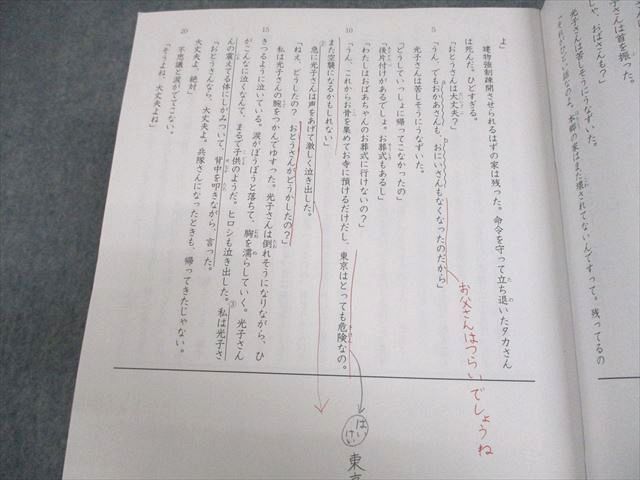 光子さんは首を振った。
じゃ、おばさんも？」
光子さんは苦しそうにうなずいた。
本郷の家はまだ壊されてないんですって。残ってるの
よ」
建物強制疎開させられるはずの家は残った。命令を守って立ち退いたタカさん
は死んだ。ひどすぎる。
「おとうさんは大丈夫？」
5
「うん、でもおかあさんも、おにいさんもなくなったのだから」
光子さんは苦しそうにうなずいた。
「どうしていっしょに帰ってこなかったの」
「後片付けがあるでしょ。お葬式もあるし」
「わたしはおばあちゃんのお葬式に行けないの？」
10
「うん、これからお骨を集めてお寺に預けるだけだし、東京はとっても危険なの。
また空襲になるかもしれない」
②
急に光子さんは声をあげて激しく泣き出した。
「ねえ、どうしたの？ おとうさんがどうかしたの？」
私は光子さんの腕をつかんでゆすった。光子さんは倒れそうになりながら、ひ
15
きつるように泣いている。涙がぼうぼうと落ちて、胸を濡らしていく。光子さん
がこんなに泣くなんて、まるで子供のようだ。ヒロシも泣き出した。③私は光子さ
んの震えてる体にしがみついて、背中を叩きながら、言った。
「おとうさんなら、大丈夫よ。兵隊さんになったときも、帰ってきたじゃない。
大丈夫よ、絶対」
不思議と涙がでてこない。
20
「そうよね、大丈夫よね」
お父さんはつらいでしょうね
はいけい
東京